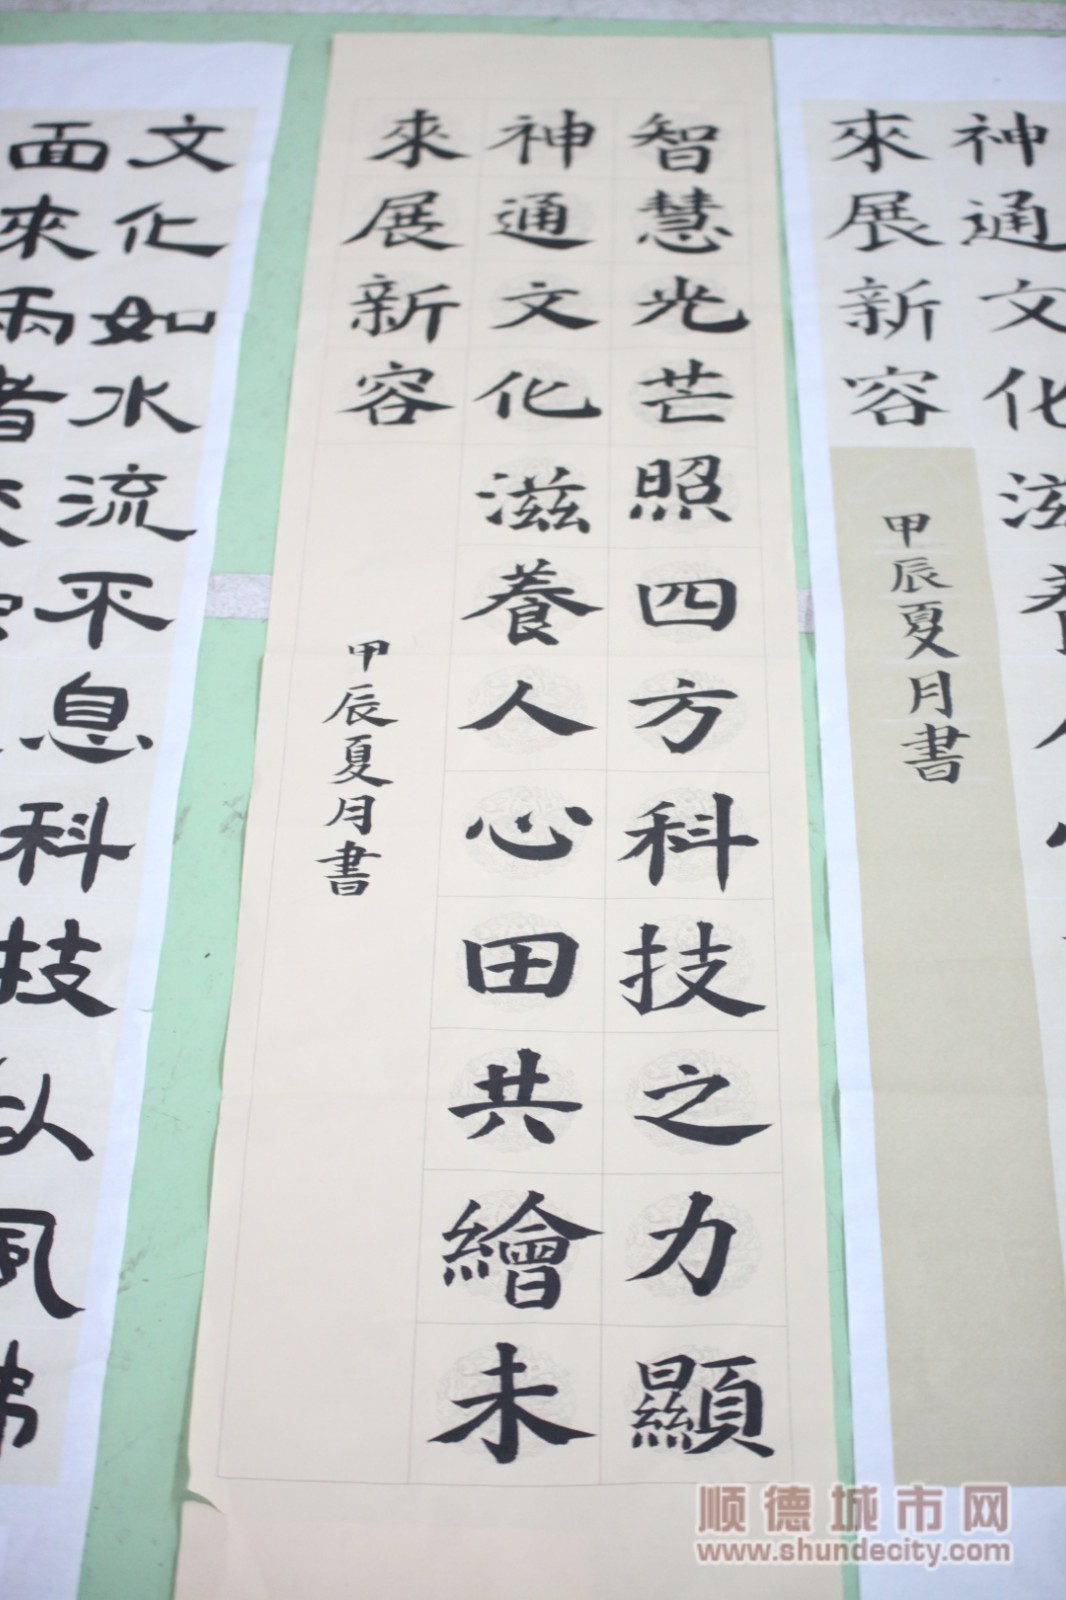 神通文化滋養
來展新容
甲辰夏月書
智慧光芒照四方科技之力顯
神通文化滋養人心田共繪未
來展新容
甲辰夏月書
文化如水流不息科技似風拂
面來兩者交
顺德城市网
www.shundecity.com